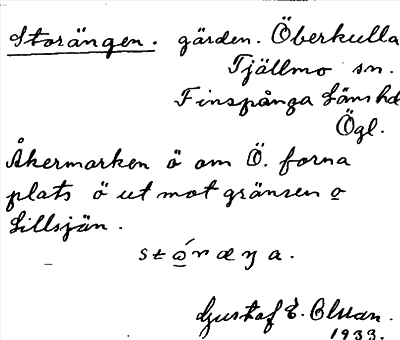 Storängen. gärden. Överkulla
Tjällmo sn.
Finspånga Länshd
Ögl.
Åkermarken ö om Ö. forna
plats ö ut mot gränsen o
Lillsjän.
stó̲ræŋa.
Gustaf E. Olsson.
1933.